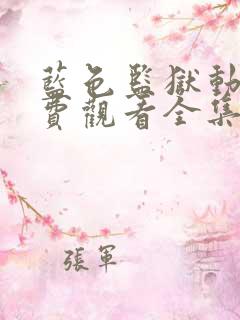 藍色監獄動
費觀看全集
張軍